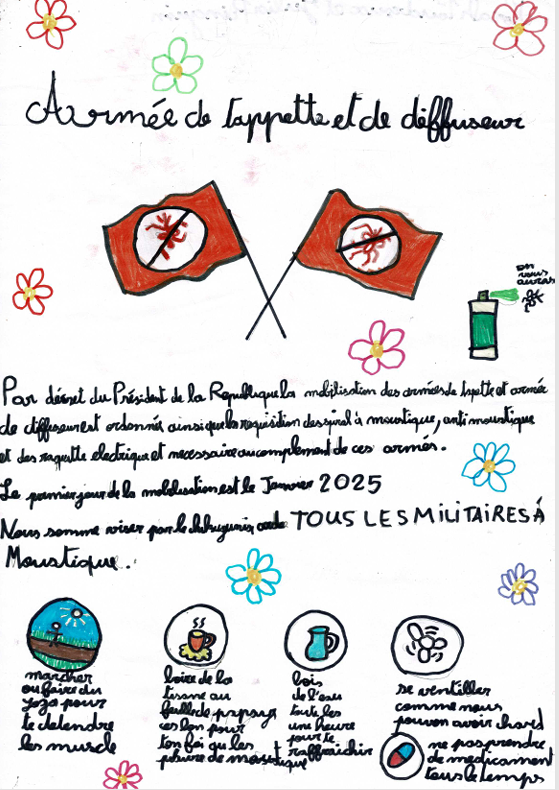 Armée de tappette et de diffuseur
on vous auras
Par décret du Président de la Republique la mobilisation des armées de tapette et armée
de diffuseur est ordonnés ainsi que la requisition des spiral à moustique, anti moustique
et des raquette electrique et necessaire au complement de ces armés.
Le permier jour de la mobilisation est le Janvier 2025
Nous somme viser par le chikungunia TOUS LES MILITAIRES À
Moustique.
marcher
ou faire du
yoga pour
te detendre
les muscle
boire de la
tisane au
feuille de papaye
ces bon pour
ton foi qu les
piqure de moustique
bois
de l'eau
toute les
une heure
pour te
raffraichir
se ventiller
comme nous
pouvon avoir chaud
ne pas prendre
de medicament
tous le temps